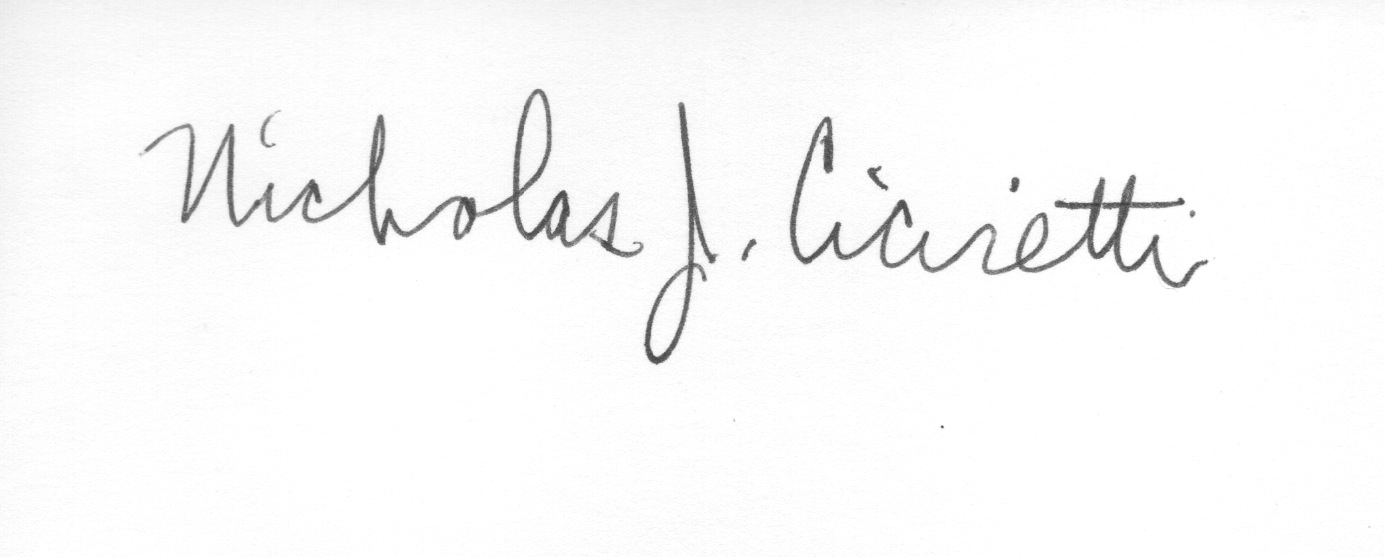 Nicholas J. Ciciretti